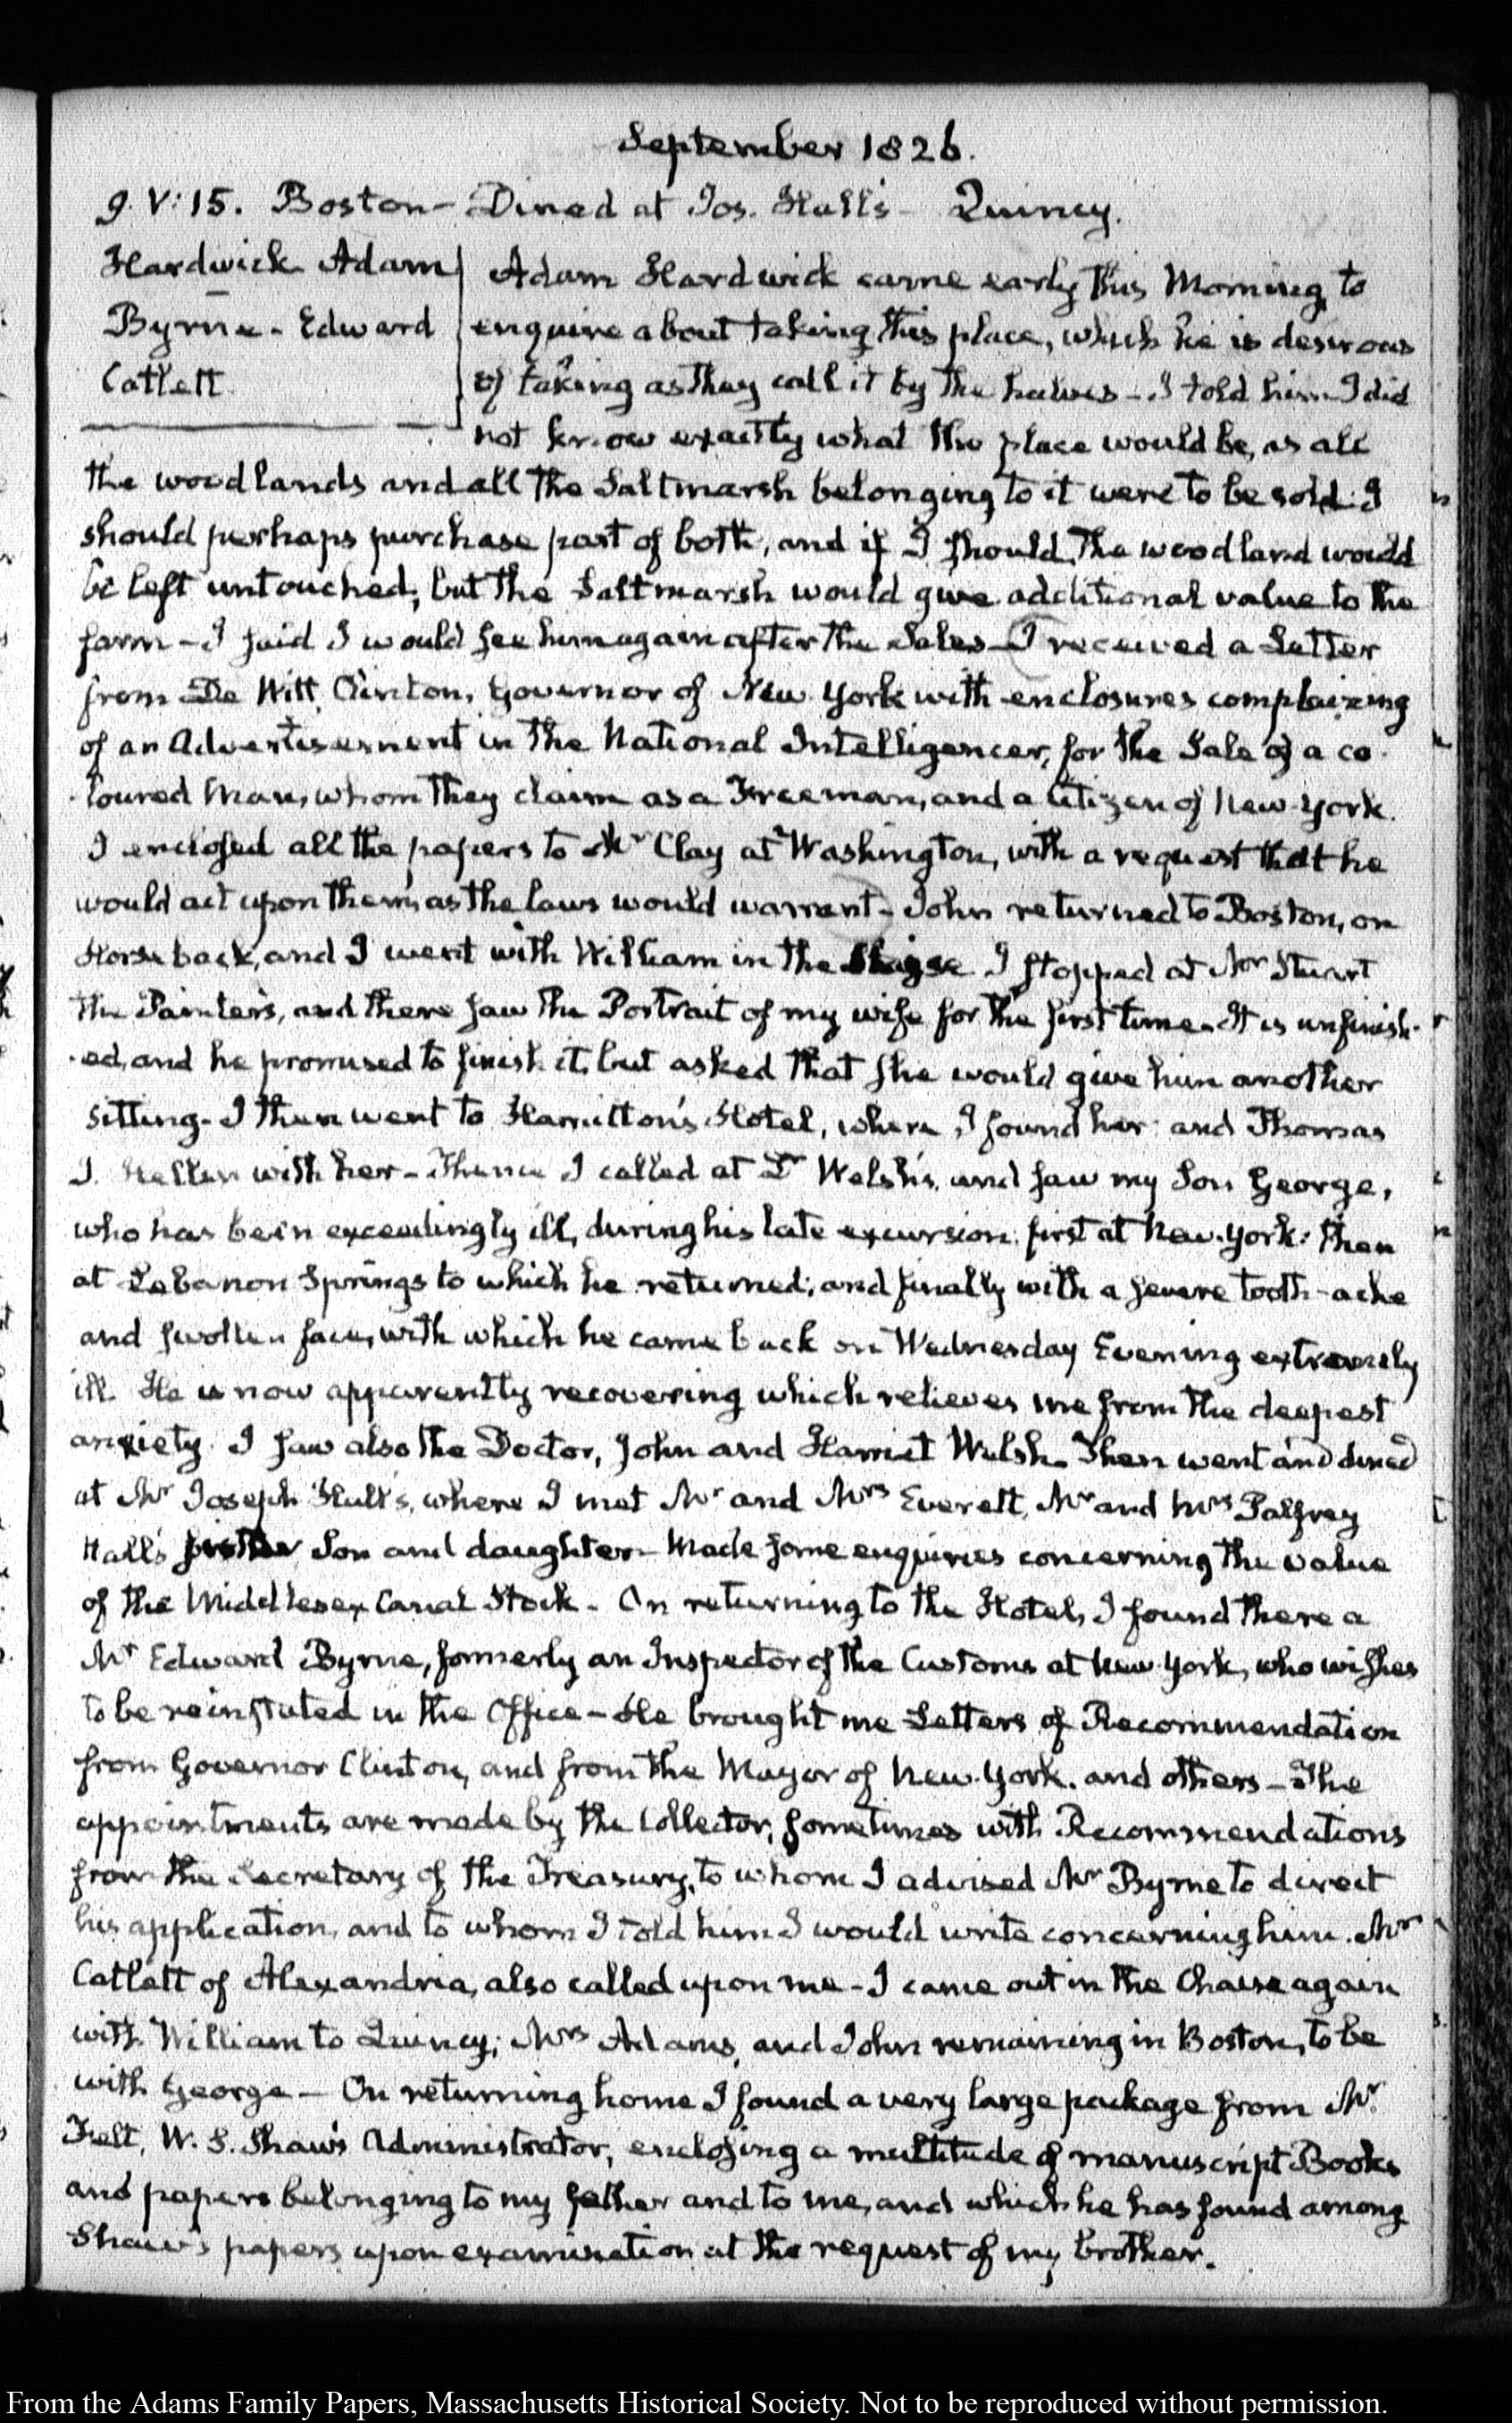 September 1826.
9. V:15. Boston - Dined at Jos. Hall's - Quincy.
Hardwick Adam
Byrne - Edward
Catlett
Adam Hardwick came early this Morning, to
enquire about taking this place, which he is desirous
of taking as they call it by the halves - I told him I did
not know exactly what the place would be, as all
the woodlands and all the Saltmarsh belonging to it were to be sold. I
should perhaps purchase part of both, and if I should, the woodland would
be left untouched; but the Saltmarsh would give additional value to the
farm - I said I would see him again after the Sales - I received a Letter
from De Witt Clinton, Governor of New York with enclosures complaining
of an Advertisement in the National Intelligencer, for the Sale of a co-
-loured Man, whom they claim as a Freeman, and a Citizen of New-York.
I enclosed all the papers to Mr Clay at Washington, with a request that he
would act upon them, as the laws would warrant - John returned to Boston, on
Horseback, and I went with William in the Chaise I stopped at Mr Stuart
the Painter's, and there saw the Portrait of my wife for the first time - It is unfinish-
-ed, and he promised to finish it, but asked that she would give him another
sitting - I then went to Hamilton's Hotel, where I found her and Thomas
J. Hellen with her - Thence I called at Dr Welsh's, and saw my Son George,
who has been exceedingly ill, during his late excursion, first at New-York: then
at Lebanon Springs to which he returned; and finally with a severe tooth-ache
and swollen face, with which he came back on Wednesday Evening extremely
ill. He is now apparently recovering which relieves me from the deepest
anxiety. I saw also the Doctor, John and Harriet Welsh. Then went and dined
at Mr Joseph Hall's, where I met Mr and Mrs Everett, Mr and Mrs Palfrey
Hall's Son and daughter - Made some enquiries concerning the value
of the Middlesex Canal Stock - On returning to the Hotel, I found there a
Mr Edward Byrne, formerly an Inspector of the Customs at New-York, who wishes
to be reinstated in the Office - He brought me Letters of Recommendation
from Governor Clinton, and from the Mayor of New-York. and others - The
appointments are made by the Collector, sometimes with Recommendations
from the Secretary of the Treasury, to whom I advised Mr Byrne to direct
his application, and to whom I told him I would write concerning him. Mr
Catlett of Alexandria, also called upon me - I came out in the Chaise again
with William to Quincy; Mrs Adams, and John remaining in Boston, to be
with George - On returning home I found a very large package from Mr.
Felt, W. S. Shaw's Administrator, enclosing a multitude of manuscript Books
and papers belonging to my father and to me, and which he has found among
Shaw's papers upon examination at the request of my brother.
From the Adams Family Papers, Massachusetts Historical Society. Not to be reproduced without permission.